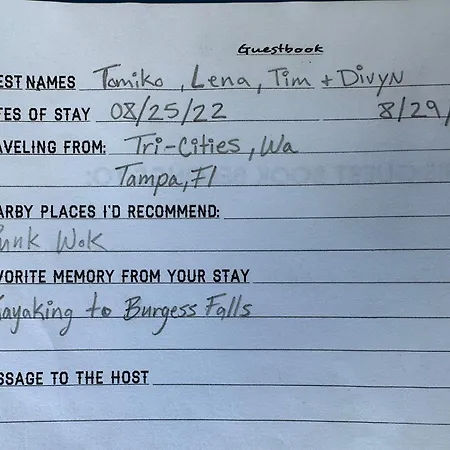 Guestbook
EST NAMES Tomiko, Lena, Tim + Divyn
TES OF STAY 08/25/22 8/29/
AVELING FROM: Tri-Cities, Wa
Tampa, Fl
ARBY PLACES I'D RECOMMEND:
unk Wok
VORITE MEMORY FROM YOUR STAY
Kayaking to Burgess Falls
SSAGE TO THE HOST